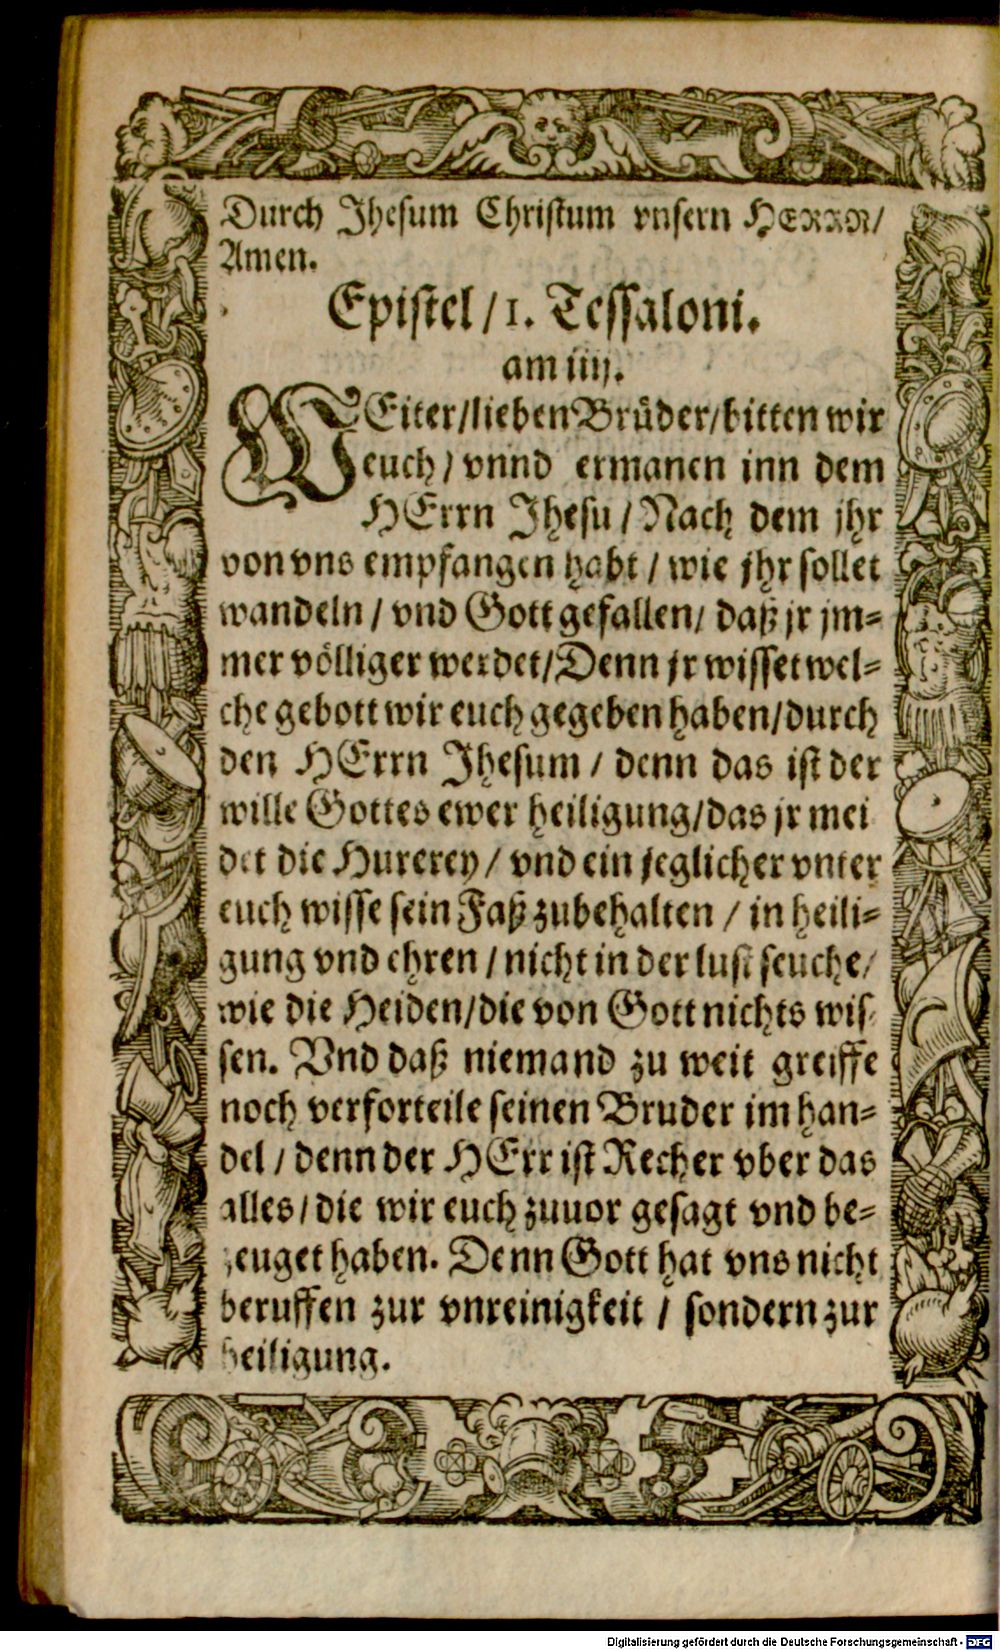 Durch Jhesum Christum vnsern HERRN/
Amen.
Epistel/1. Tessaloni.
am iiij.
WEiter/lieben Brüder/bitten wir
euch/ vnnd ermanen inn dem
HErrn Jhesu/Nach dem jhr
von vns empfangen habt/ wie jhr sollet
wandeln/ vnd Gott gefallen/ daß jr jm=
mer völliger werdet/Denn jr wisset wel=
che gebott wir euch gegeben haben/durch
den HErrn Jhesum/ denn das ist der
wille Gottes ewer heiligung/das jr mei
det die Hurerey/ vnd ein jeglicher vnter
euch wisse sein Faß zubehalten/ in heili=
gung vnd ehren/ nicht in der lust seuche/
wie die Heiden/die von Gott nichts wis
sen. Vnd daß niemand zu weit greiffe
noch verforteile seinen Bruder im han=
del/ denn der HErr ist Recher vber das
alles/die wir euch zuuor gesagt vnd be=
zeuget haben. Denn Gott hat vns nicht
beruffen zur vnreinigkeit/ sondern zur
heiligung.
Digitalisierung gefördert durch die Deutsche Forschungsgemeinschaft - DFG